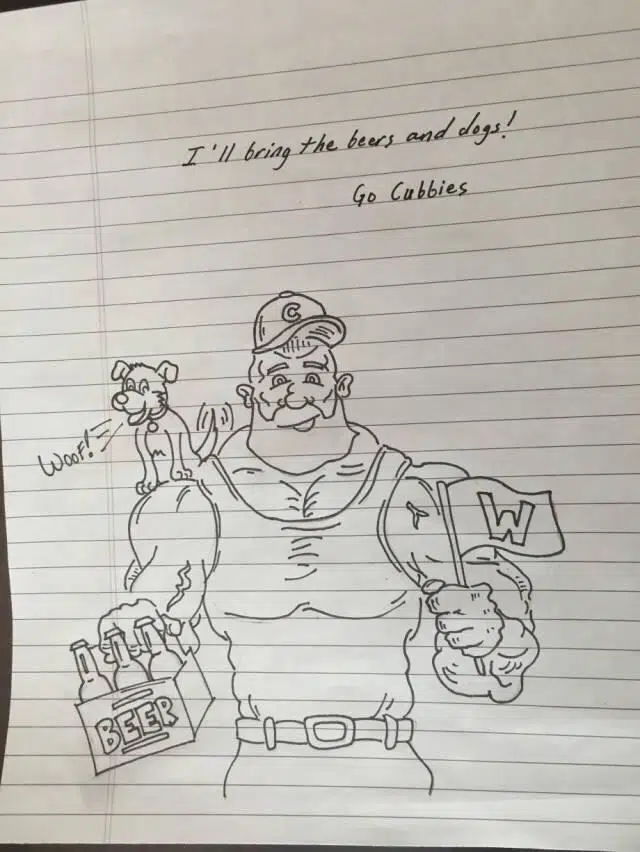 I'll bring the beers and dogs!
Go Cubbies
C
WOOF!
W
BEER